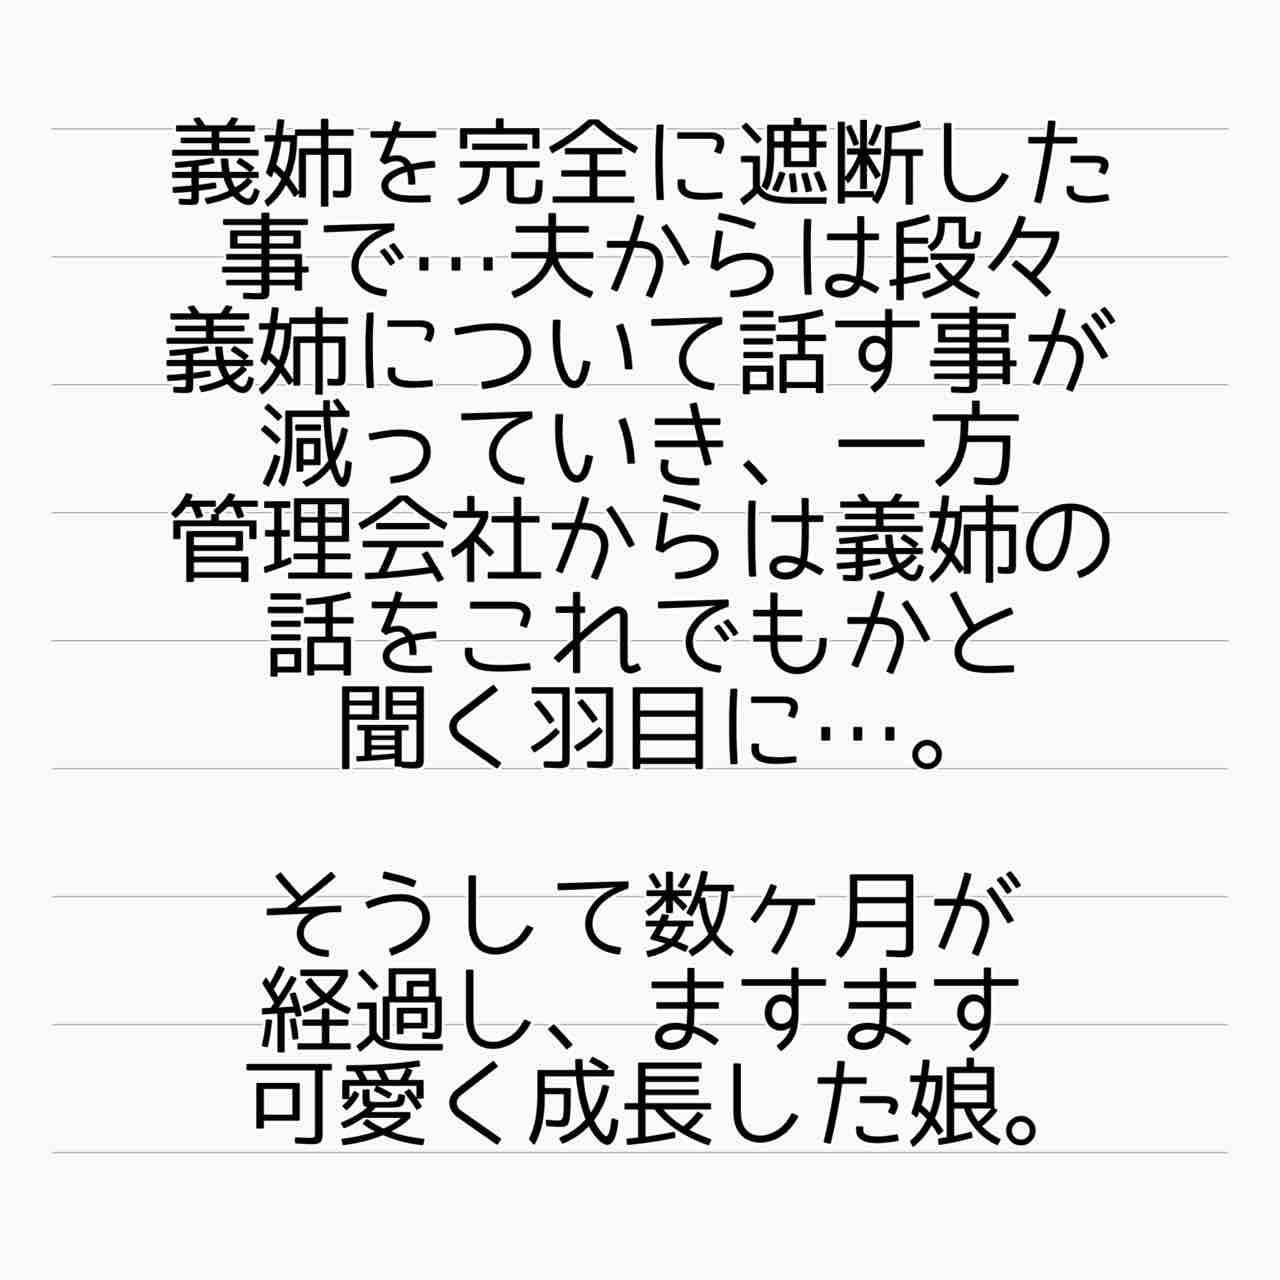 義姉を完全に遮断した
事で…夫からは段々
義姉について話す事が
減っていき、一方
管理会社からは義姉の
話をこれでもかと
聞く羽目に…。
そうして数ヶ月が
経過し、ますます
可愛く成長した娘。